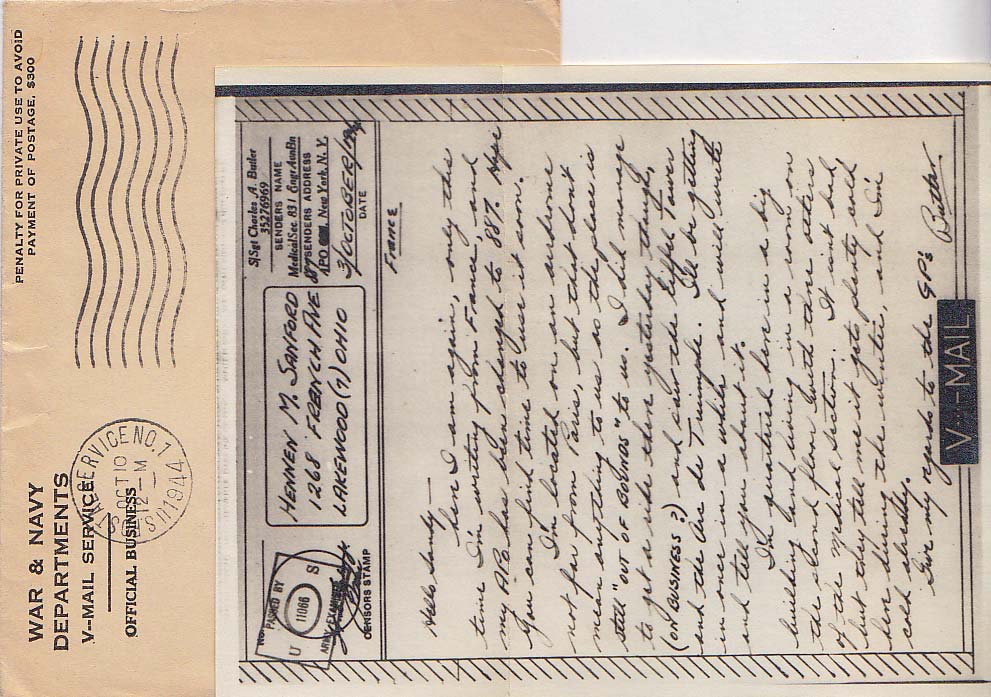 PENALTY FOR PRIVATE USE TO AVOID
PAYMENT OF POSTAGE, $300
WAR & NAVY
DEPARTMENTS
V--MAIL SERVICE
OFFICIAL BUSINESS
SERVICE NO. 1
OCT 10
12-M
1944
PASSED BY
U 11066 S
ARMY EXAMINER
CENSORS STAMP
HENNEN M. SANFORD
1268 FRENCH AVE
LAKEWOOD (7) OHIO
S/Sgt Charles A. Butler
35276969
SENDERS NAME
Medical Sec. 831 EngrAvnBn
SENDERS ADDRESS
APO 887 New York, N. Y.
3/OCTOBER/1944
DATE
France
Hello Sandy—
here I am again, only this
time I'm writing from France, and
my APO has been changed to 887. Hope
you can find time to use it soon.
I'm located on an airdrome
not far from Paris, but that don't
mean anything to us as the place is
still "OUT OF BOUNDS" to us. I did manage
to get a ride there yesterday though,
(ON BUSINESS?) and saw the Eiffel Tower
and the Arc de Triumple. I'll be getting
in once in a while and will write
and tell you about it.
I'm quartered here in a big
building and living in a room on
the second floor with three others
of the medical section. It isn't bad
but they tell me it gets plenty cold
here during the winter, and I'm
cold already.
Give my regards to the GP's
Butler
V--MAIL